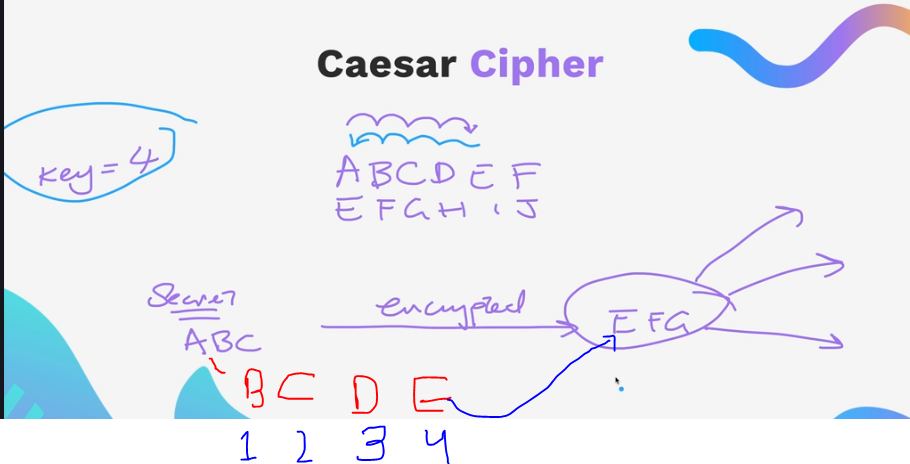 Caesar Cipher
key = 4
A B C D E F
E F G H I J
Secret
ABC
encrypted
E F G
B C D E
1 2 3 4